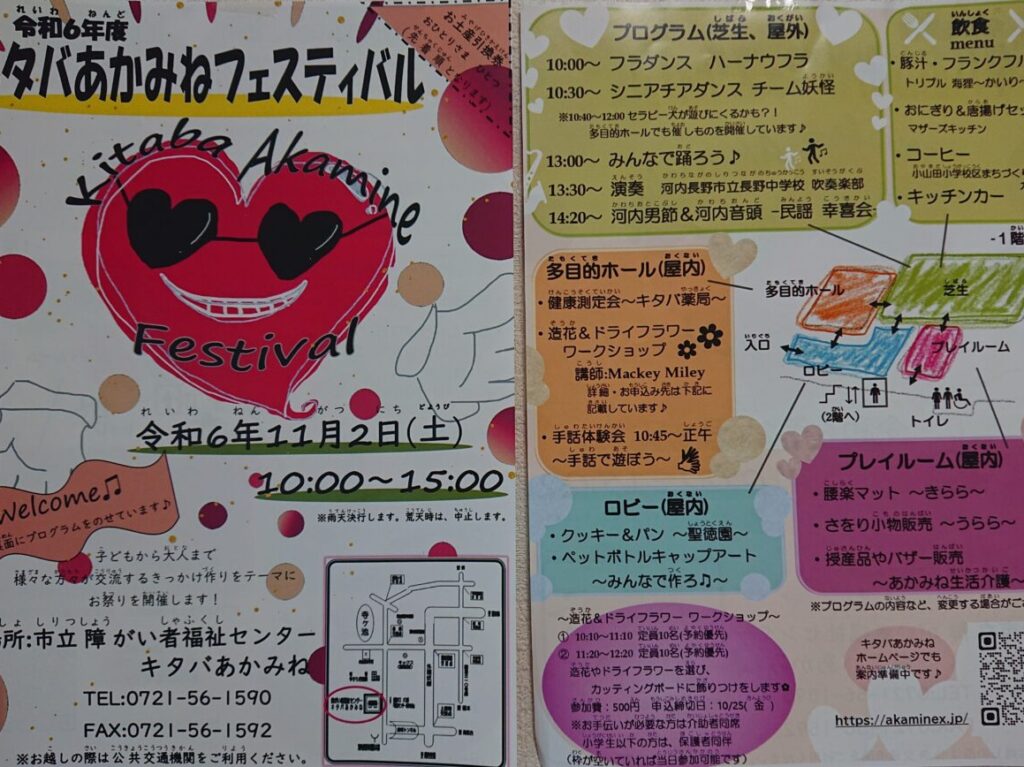 令和6年度
タバあかみねフェスティバル
お土産引換券
おひとりさま ひとつ
(先着順と
ります)
Kitaba Akamine
Festival
令和6年11月2日(土)
10:00～15:00
※雨天決行します。荒天時は、中止します。
Welcome♫
面にプログラムをのせています♪
子どもから大人まで
様々な方々が交流するきっかけ作りをテーマに
お祭りを開催します!
所:市立障がい者福祉センター
キタバあかみね
TEL:0721-56-1590
FAX:0721-56-1592
※お越しの際は公共交通機関をご利用ください。
寺ヶ池
プログラム(芝生、屋外)
10:00～ フラダンス ハーナウフラ
10:30～ シニアチアダンス チーム妖怪
※10:40～12:00 セラピー犬が遊びにくるかも?!
多目的ホールでも催しものを開催しています♪
13:00～ みんなで踊ろう♪
13:30～ 演奏 河内長野市立長野中学校 吹奏楽部
14:20～ 河内男節&河内音頭 -民謡 幸喜会-
飲食
menu
・豚汁・フランクフル
トリプル 海狸～かいり～
・おにぎり&唐揚げセッ
マザーズキッチン
・コーヒー
小山田小学校区まちづくり
・キッチンカー
-1階
多目的ホール
芝生
入口
ロビー
プレイルーム
(2階へ)
トイレ
多目的ホール(屋内)
・健康測定会～キタバ薬局～
・造花&ドライフラワー
ワークショップ
講師:Mackey Miley
詳細・お申込み先は下記に
記載しています♪
・手話体験会 10:45～正午
～手話で遊ぼう～
ロビー(屋内)
・クッキー&パン ～聖徳園～
・ペットボトルキャップアート
～みんなで作ろ♫～
プレイルーム(屋内)
・腰楽マット ～きらら～
・さをり小物販売 ～うらら～
・授産品やバザー販売
～あかみね生活介護～
※プログラムの内容など、変更する場合がご
～造花&ドライフラワー ワークショップ～
① 10:10～11:10 定員10名(予約優先)
② 11:20～12:20 定員10名(予約優先)
造花やドライフラワーを選び、
カッティングボードに飾りつけをします✿
参加費:500円 申込締切日:10/25(金)
※お手伝いが必要な方は介助者同席
小学生以下の方は、保護者同伴
(枠が空いていれば当日参加可能です)
キタバあかみね
ホームページでも
案内準備中です♪
https://akaminex.jp/